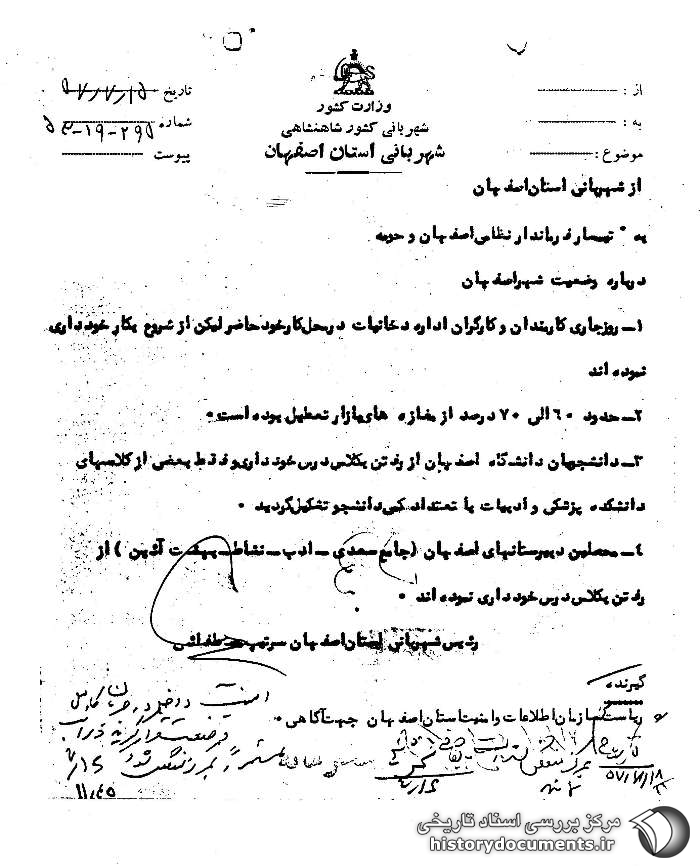 وزارت کشور
شهربانی کشور شاهنشاهی
شهربانی استان اصفهان
از :
به :
موضوع :
تاریخ ۵۷/۷/۱۵
شماره ۲۹۵-۱۹-۵۳
پیوست
از شهربانی استان اصفهان
به تیمسار فرماندار نظامی اصفهان و حومه
درباره وضعیت شهر اصفهان
۱ــ روزجاری کارمندان و کارگران اداره دخانیات درمحل کار خود حاضر لیکن از شروع بکار خود داری
نموده اند
۲ــ حدود ۶۰ الی ۷۰ درصد از مغازه های بازار تعطیل بوده است .
۳ــ دانشجویان دانشگاه اصفهان از رفتن بکلاس درس خود داری و فقط بعضی از کلاسهای
دانشکده پزشکی و ادبیات با تعداد کمی دانشجو تشکیل گردید .
۴ــ محصلین دبیرستانهای اصفهان ( جامع سعدی ــ ادب ــ نشاط ــ بهشت آئین ) از
رفتن بکلاس درس خود داری نموده اند .
رئیس شهربانی استان اصفهان سرتیپ
گیرنده
ریاست سازمان اطلاعات و امنیت استان اصفهان جهت آگاهی .
۵۷/۷/۱۸
۷/۱۶
۱۱/۴۵
مرکز بررسی اسناد تاریخی
historydocuments.ir